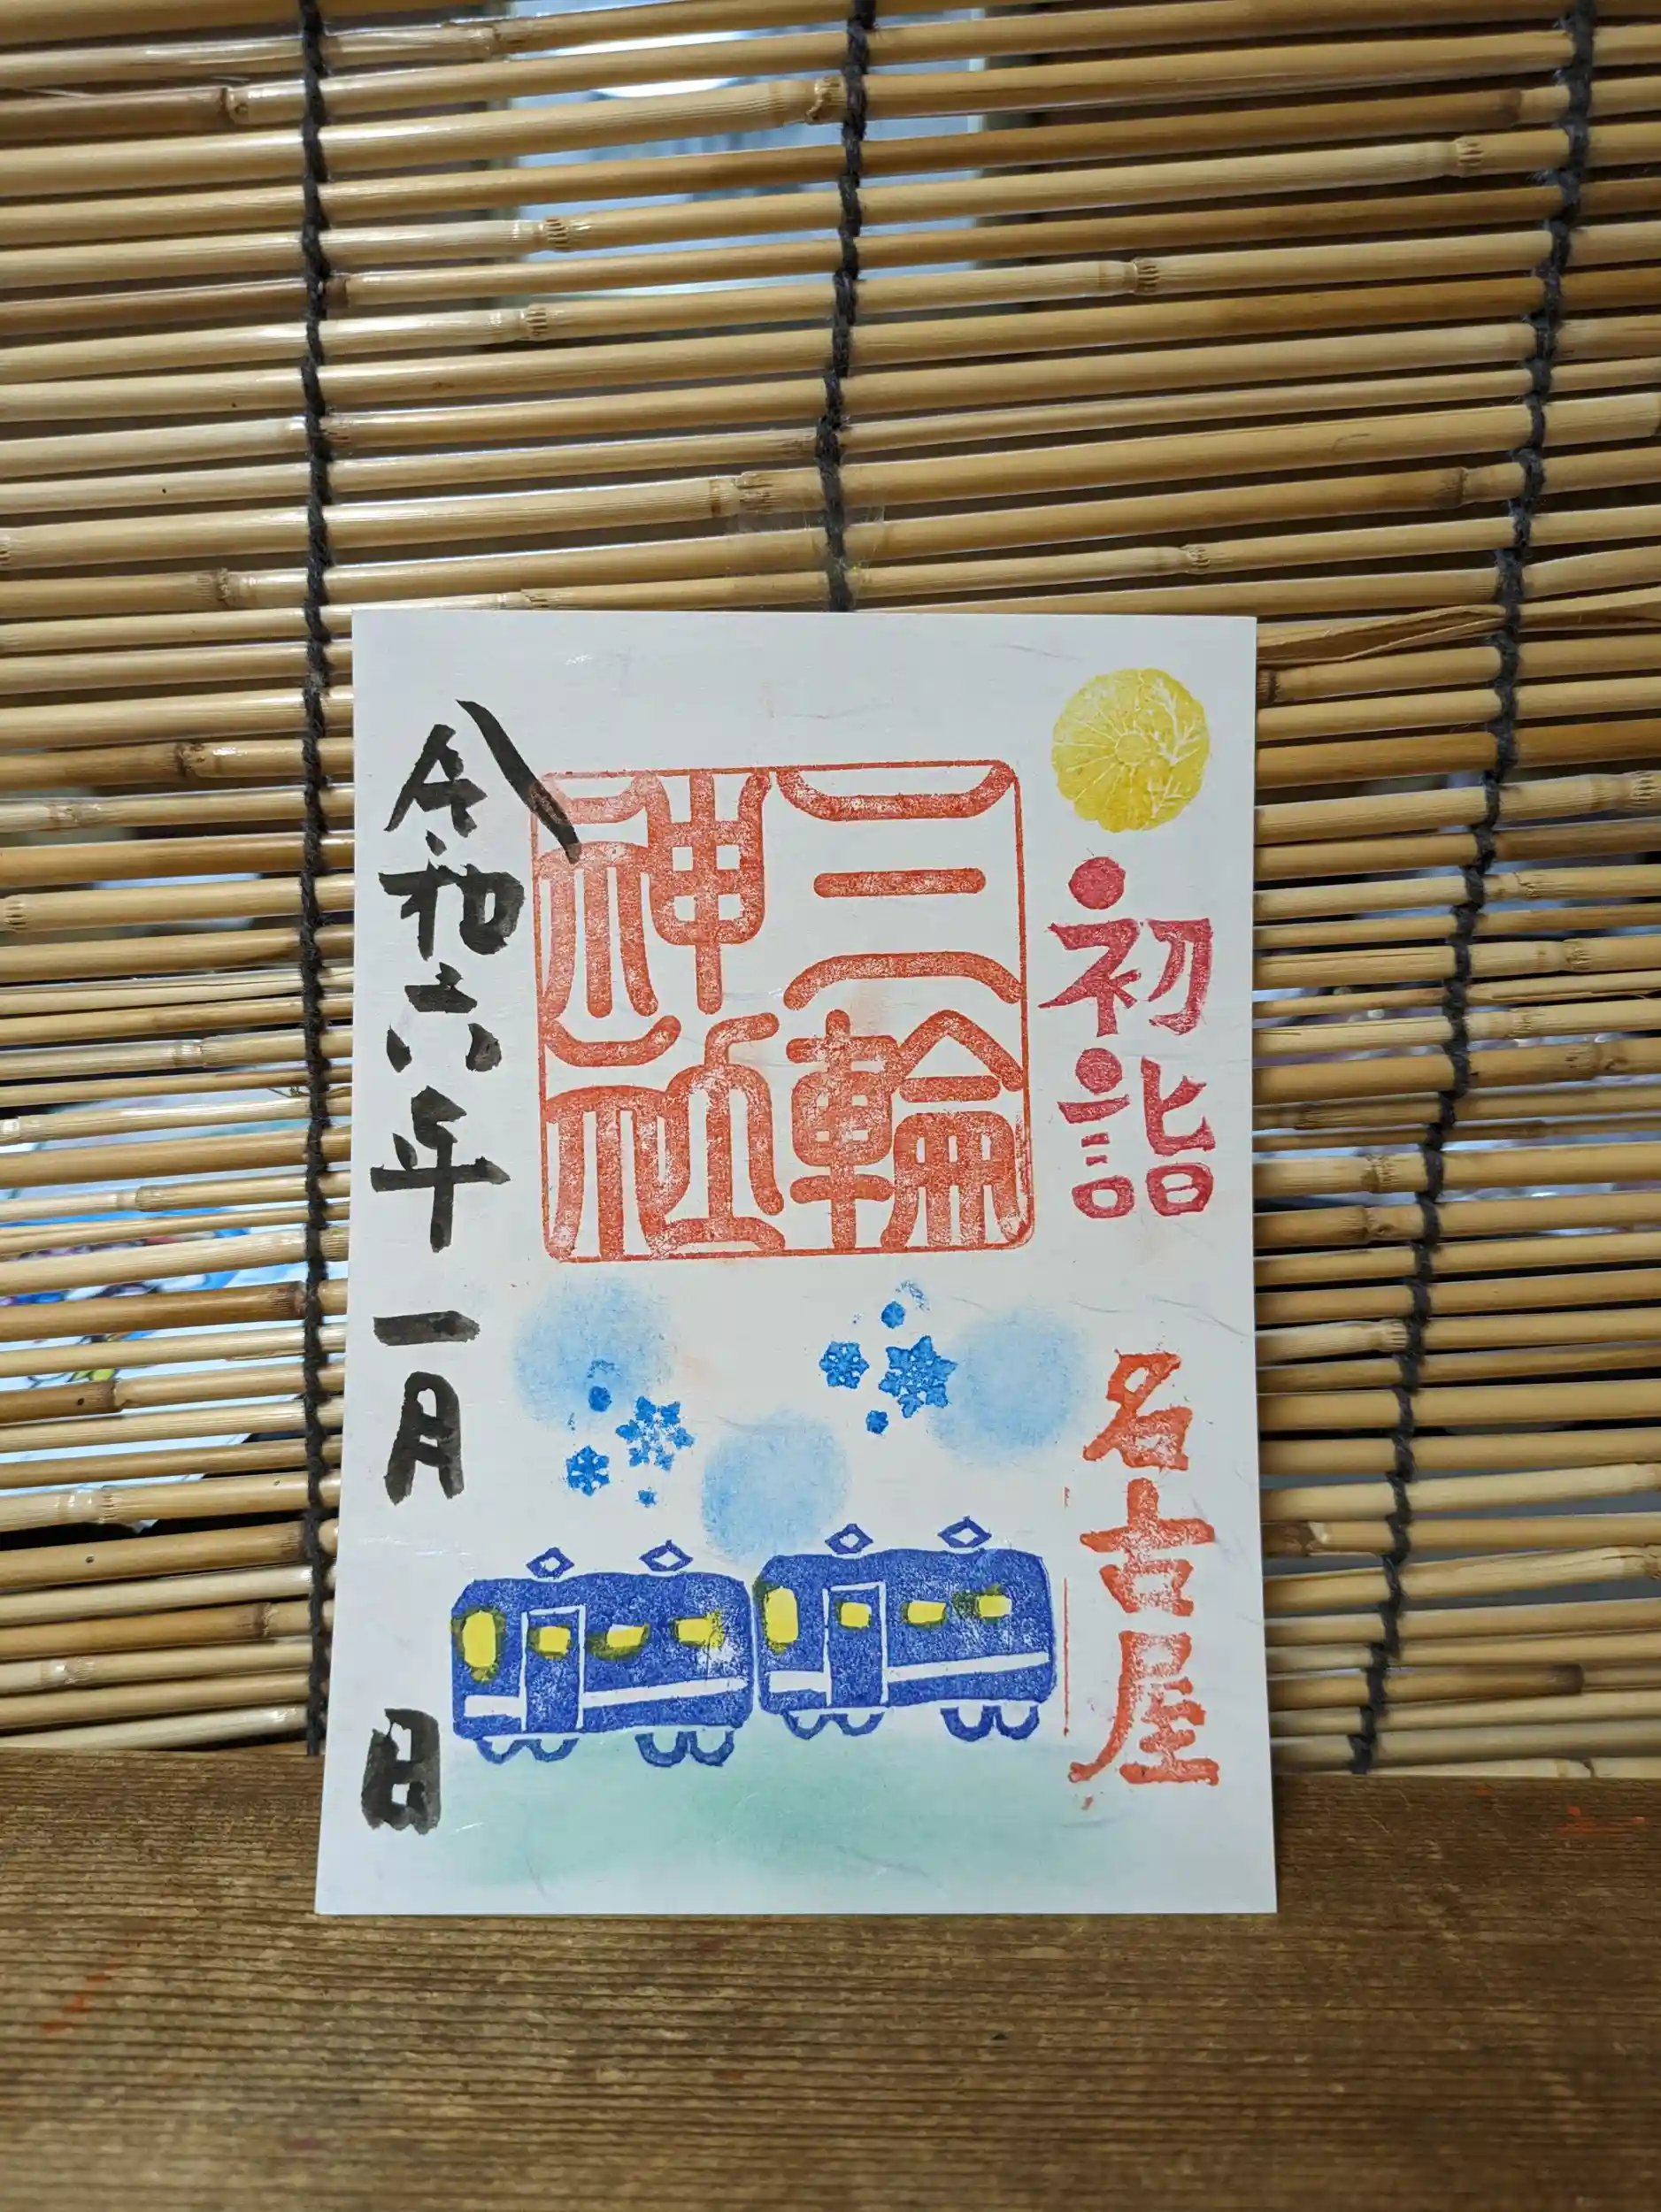 初詣
名古屋
三輪
神社
令和六年一月 日